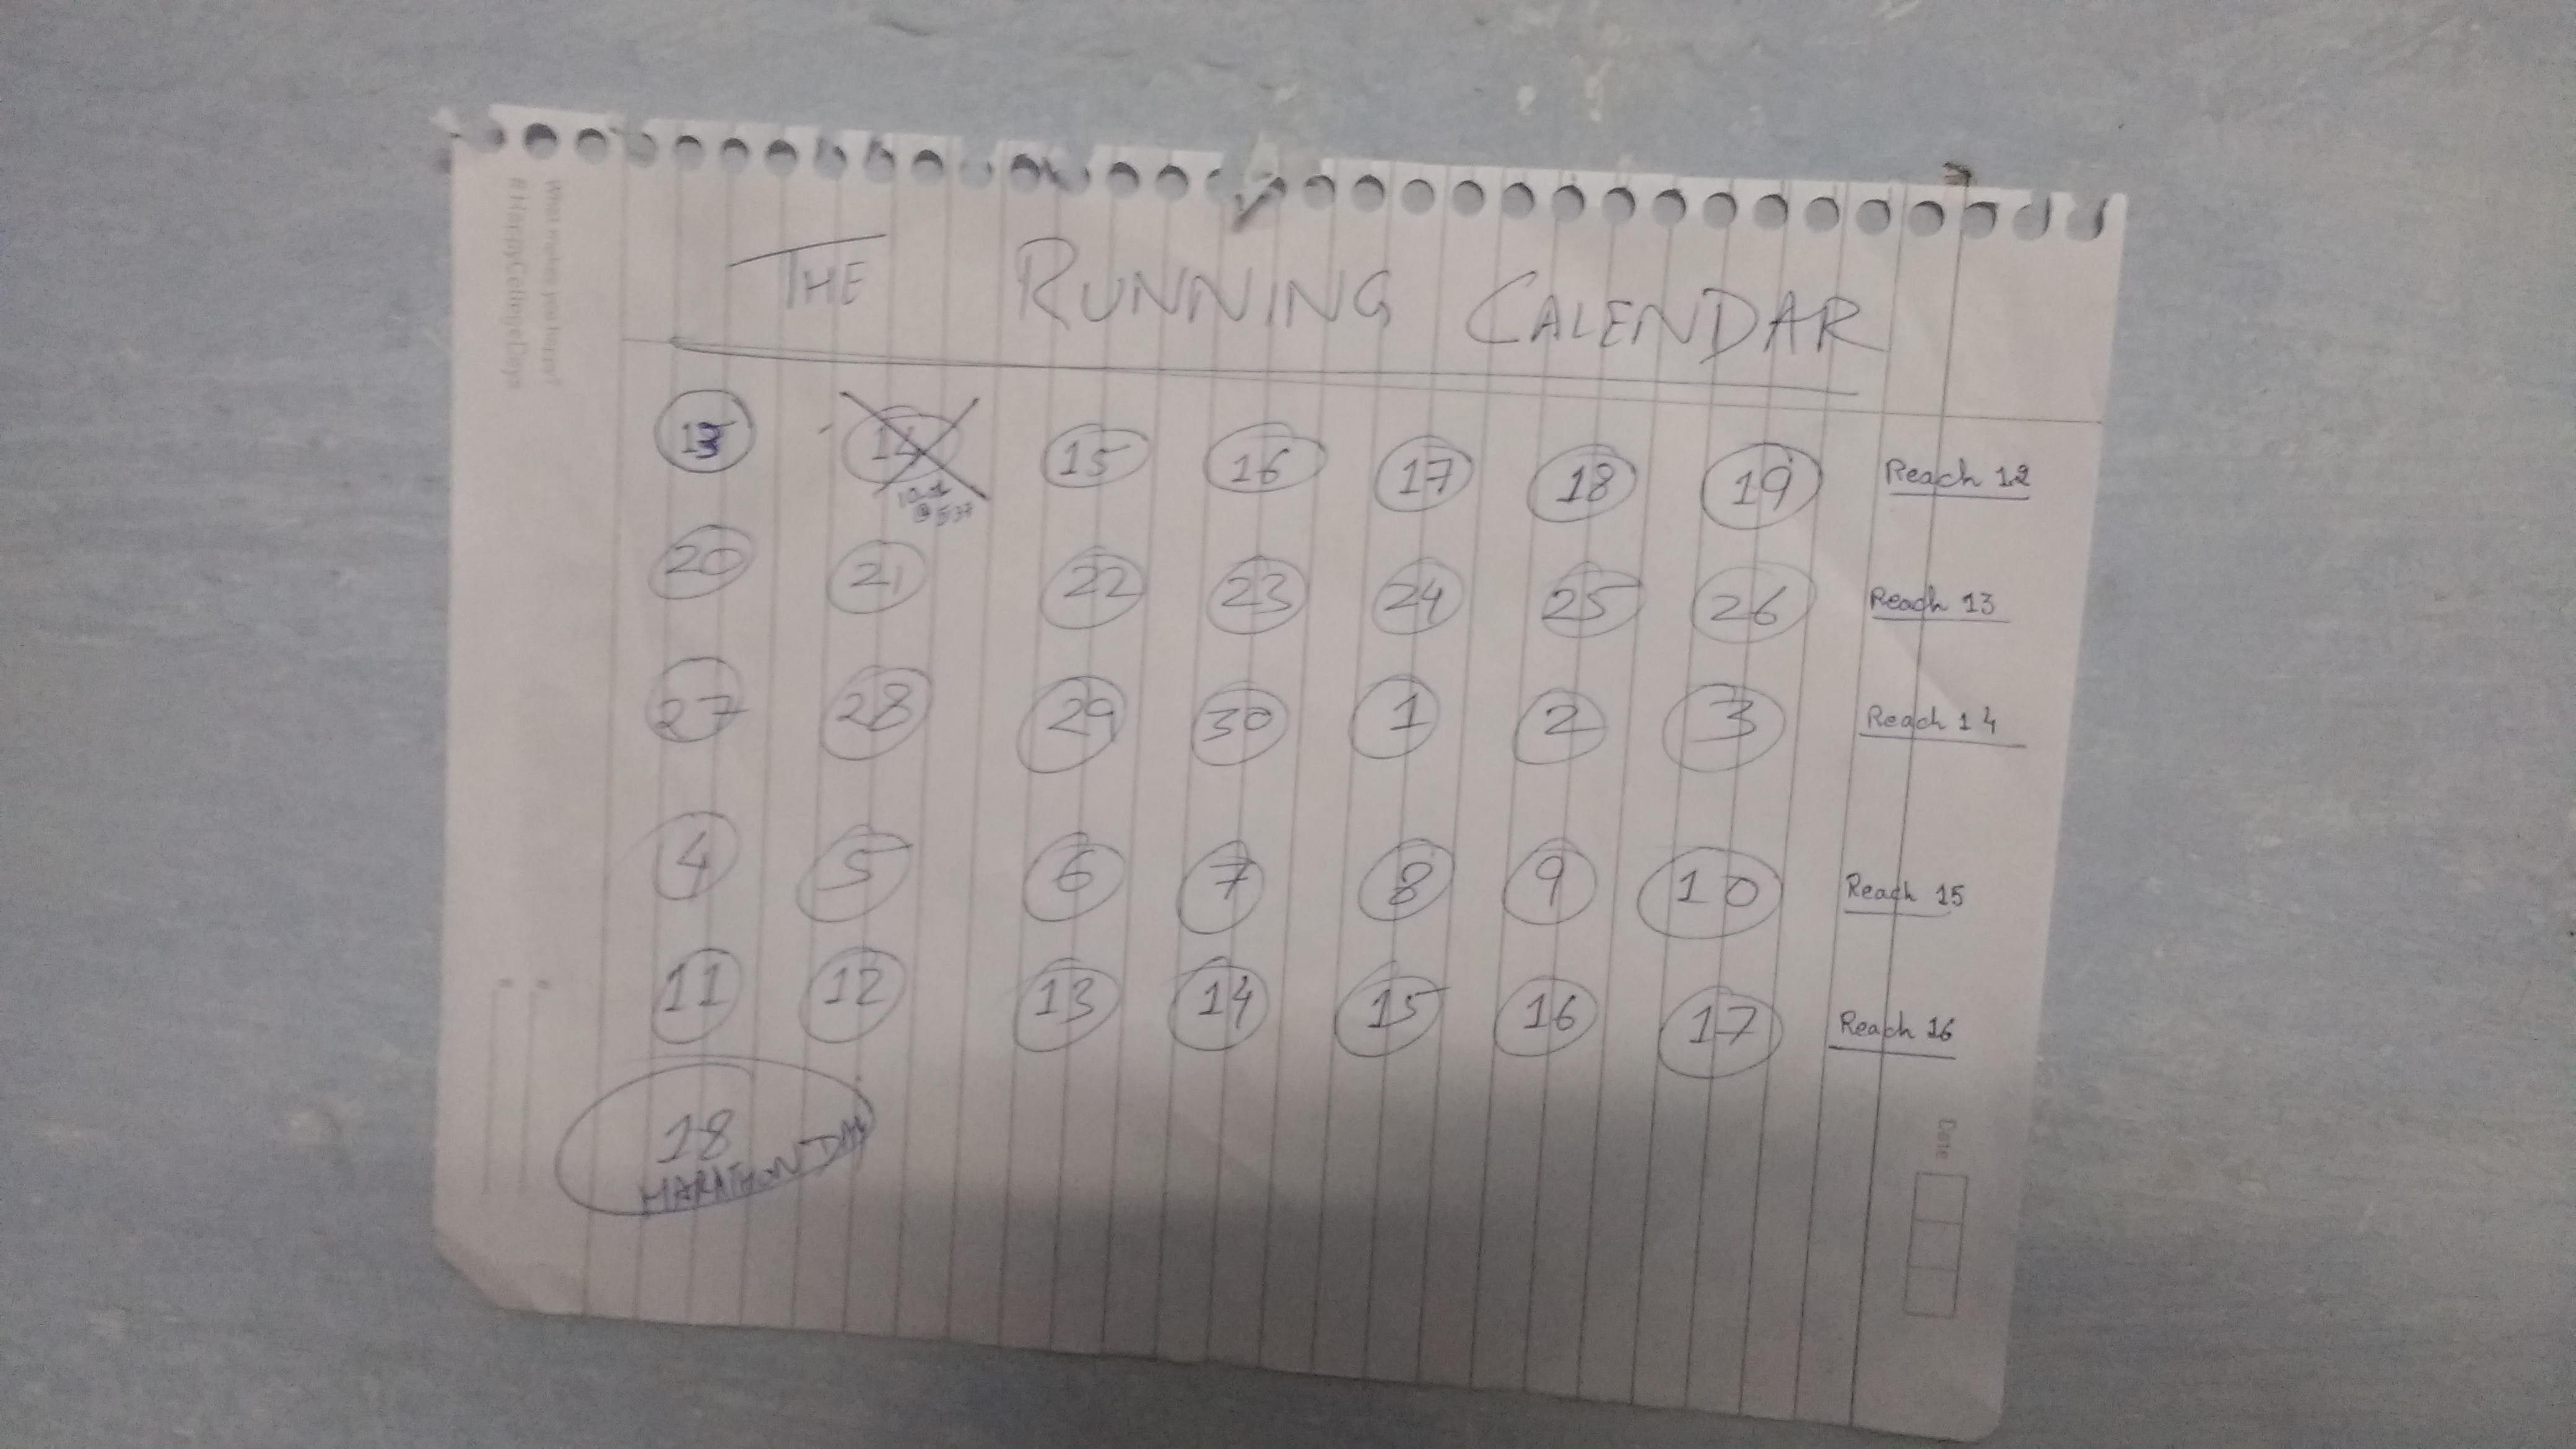 THE RUNNING CALENDAR
13 14 15 16 17 18 19 Reach 12
20 21 22 23 24 25 26 Reach 13
27 28 29 30 1 2 3 Reach 14
4 5 6 7 8 9 10 Reach 15
11 12 13 14 15 16 17 Reach 16
18
MARATHON DAY
What makes you happy?
#HappyCollegeDays
Date